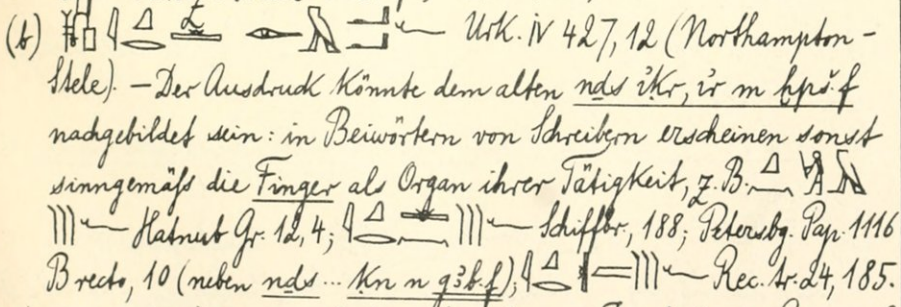 (b) Urk. IV 427,12 (Northampton-
Stele). – Der Ausdruck könnte dem alten nḏs ỉḳr, ỉr m ḫpš.f
nachgebildet sein: in Beiwörtern von Schreibern erscheinen sonst
sinngemäß die Finger als Organ ihrer Tätigkeit, z.B.
Hatnub Gr. 12,4; Schiffbr., 188; Petersbg. Pap. 1116
B recto, 10 (neben nḏs ... ḳn n gꜣb.f); Rec. tr. 24, 185.